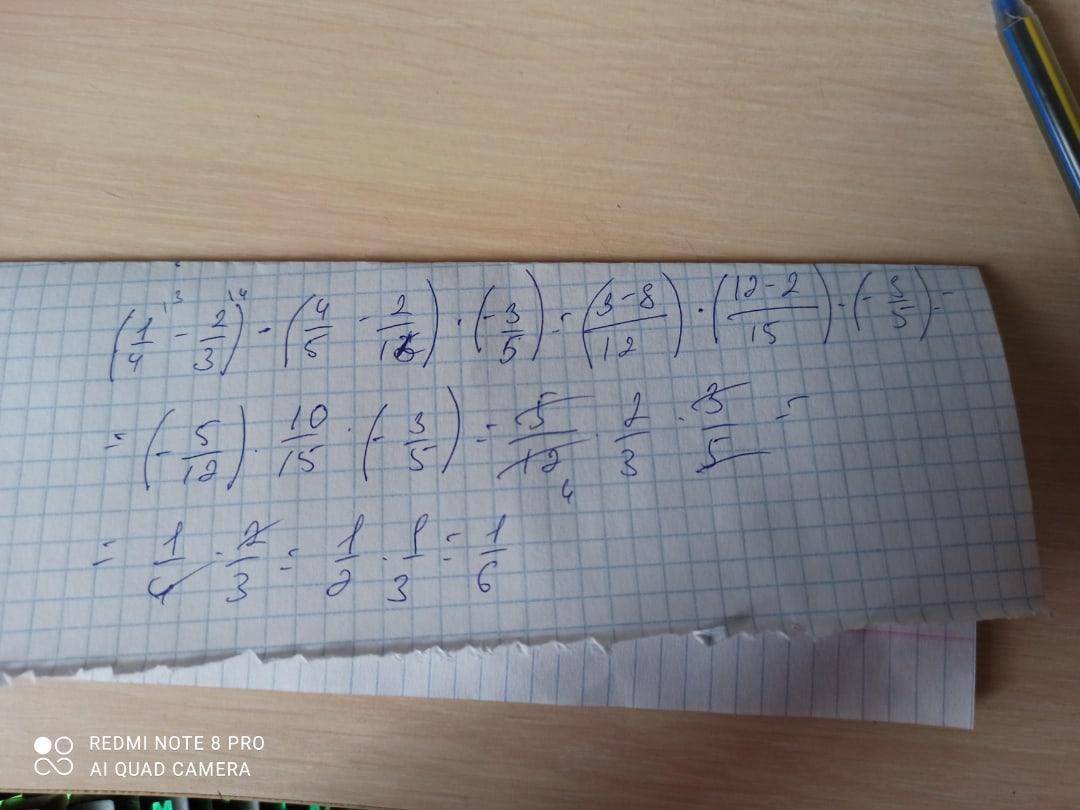 (1/4 - 2/3) · (4/5 - 2/15) · (-3/5) = (3-8/12) · (12-2/15) · (-3/5) =
= (-5/12) · 10/15 · (-3/5) = 5/12 · 2/3 · 3/5 =
4
= 1/4 · 2/3 = 1/2 · 1/3 = 1/6
REDMI NOTE 8 PRO
AI QUAD CAMERA